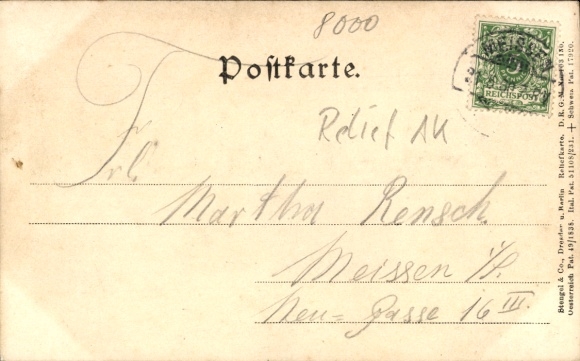 8000
Postkarte.
MEISSEN
REICHSPOST
Relief AK
Frl.
Martha Rensch.
Meissen i/S.
Neu-Gasse 16 III.
Stengel & Co., Dresden u. Berlin Reliefkarte. D. R. G. M.
Oesterreich Pat. 49/1838. Ital. Pat. 51108/231. + Schweiz Pat. 17920.